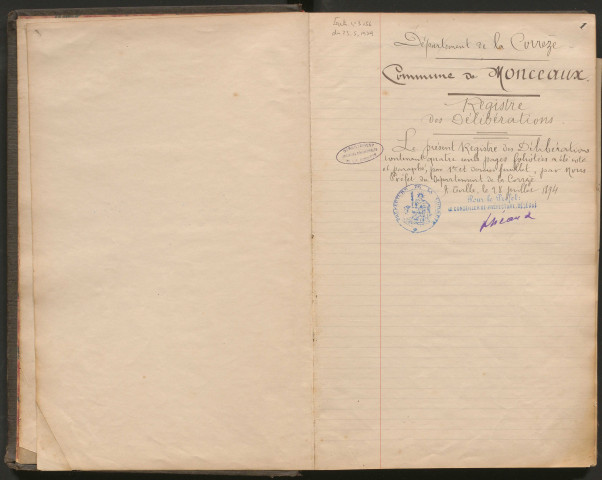 1
Département de la Corrèze
Commune de Monceaux.
Registre
des Délibérations.
Le présent Registre des Délibérations
contenant quatre cents pages foliotées a été coté
et paraphé, par 1er et dernier feuillet, par Nous
Préfet du Département de la Corrèze
A Tulle, le 28 juillet 1894
Pour le Préfet:
LE CONSEILLER DE PRÉFECTURE DÉLÉGUÉ